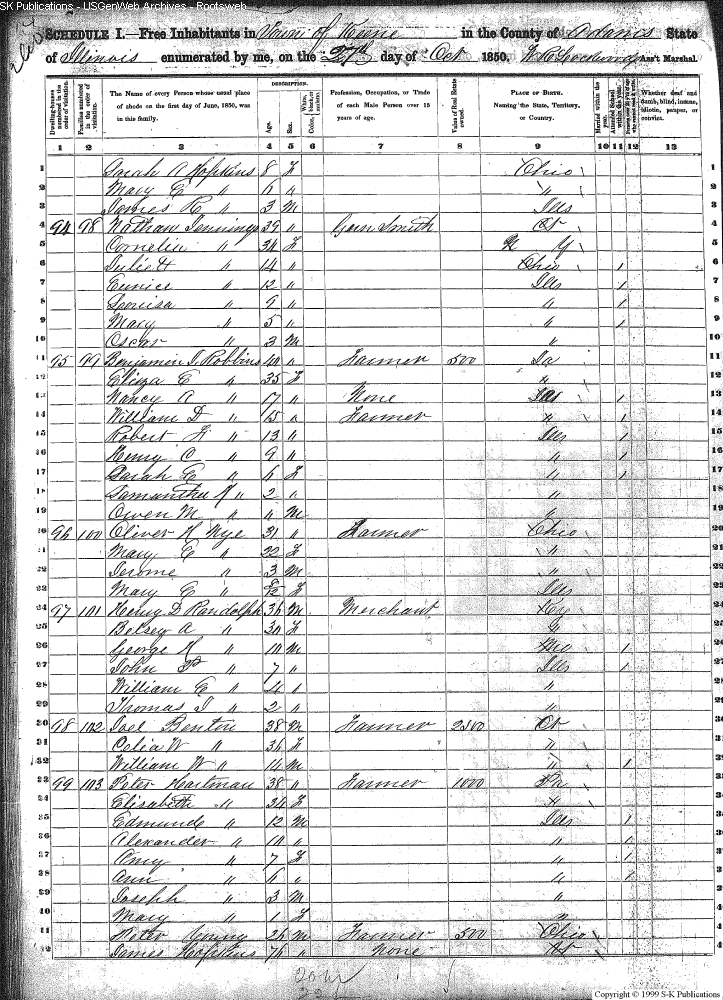 SK Publications - USGenWeb Archives - Rootsweb
SCHEDULE I.—Free Inhabitants in Town of Keene in the County of Adams State
of Illinois enumerated by me, on the 27th day of Oct 1850. Ass't Marshal.
DESCRIPTION.
Dwelling-houses numbered in the order of visitation. Families numbered in the order of visitation. The Name of every Person whose usual place of abode on the first day of June, 1850, was in this family. Age. Sex. Color, Profession, Occupation, or Trade of each Male Person over 15 years of age. Value of Real Estate owned. PLACE OF BIRTH. Naming the State, Territory, or Country. Married within the year. Attended School within the year. Whether deaf and dumb, blind, insane, idiotic, pauper, or convict.
1 2 3 4 5 6 7 8 9 10 11 12 13
1 Sarah A Hopkins 8 F Ohio 1
2 Mary E " 6 " " 2
3 James R " 3 M Ills 3
4 94 98 Nathan Jennings 39 " Gun Smith Ct 4
5 Cornelia " 34 F N Y 5
6 Juliett " 14 " Ohio 1 6
7 Eunice " 12 " Ills 1 7
8 Louisa " 9 " " 1 8
9 Mary " 5 " " 1 9
10 Oscar " 3 M " 10
11 95 99 Benjamin J. Robbins 40 " Farmer 500 11
12 Eliza E " 35 F " 12
13 Nancy A " 17 " None 1 13
14 William D " 15 " Farmer " 1 14
15 Robert F " 13 " Ills 1 15
16 Henry O " 9 " " 1 16
17 Sarah E " 6 F " 1 17
18 Samantha " 2 " " 18
19 Owen M " " M " 19
20 96 100 Oliver H Nye 31 " Farmer Ohio 20
21 Mary E " 22 F " 21
22 Jerome " 3 M " 22
23 Mary E " F Ills 23
24 97 101 Henry D Randolph 36 M Merchant Ky 24
25 Betsey A " 30 F " 25
26 George H " 10 M Mo 1 26
27 John P " 7 " Ills 1 27
28 William E " 4 " " 28
29 Thomas J " 2 " " 29
30 98 102 Joel Benton 38 M Farmer 2500 Ct 30
31 Celia W " 36 F " 31
32 William W " 14 M " 1 32
33 99 103 Peter Hartman 38 " Farmer 1000 Pa
34 Elisabeth " 34 F "
35 Edmund " 12 M Ills 1
36 Alexander " 10 " " 1
37 Amy " 7 F " 1
38 Ann " 6 " " 1
39 Joseph " 3 M "
40 Mary " 1 F "
41 Peter Young 26 M Farmer 500 Ohio
42 James Hopkins 76 " None
Copyright © 1999 S-K Publications